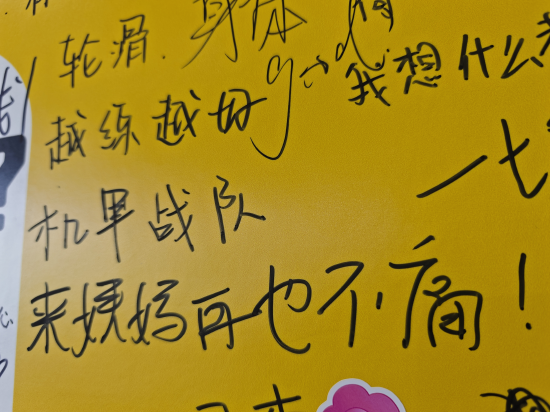 轮滑.
身体
good
我想什么
越练越好
一七
机甲战队
来姨妈再也不痛!